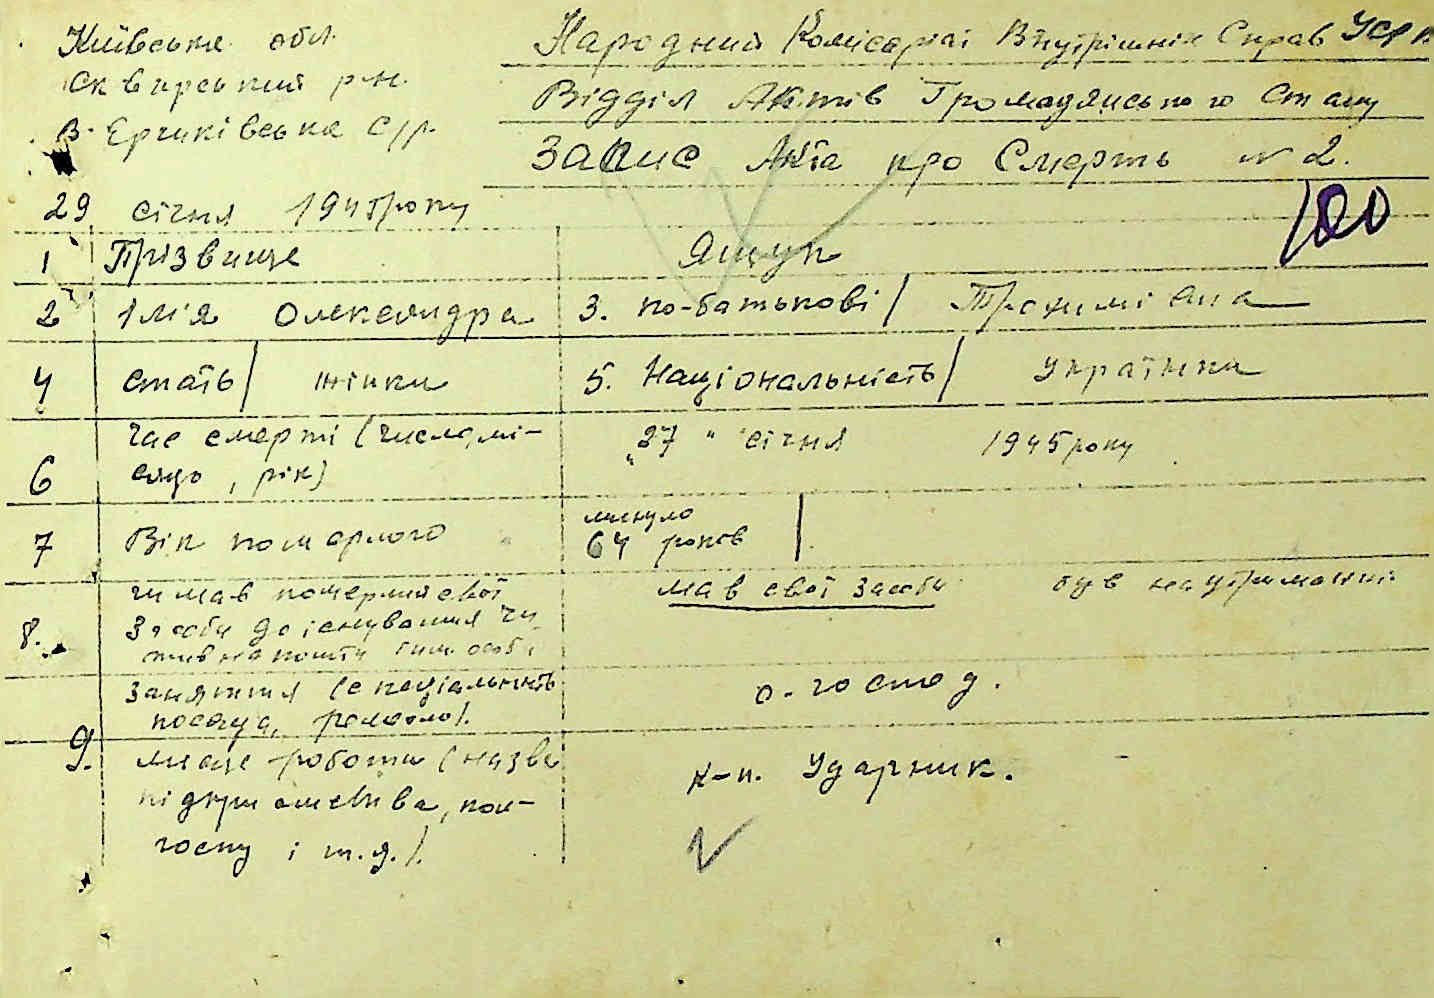 Київська обл.
Сквирський р-н.
В. Ерчиківська с/р.
29 січня 1945 року
Народний Комісаріат Внутрішніх Справ УСРР
Відділ Актів Громадянського стану
Запис Акта про Смерть № 2.
100
1 Прізвище Ящук
2 Ім'я Олександра 3. по-батькові / Трохимівна
4 стать / жінка 5. Національність / Українка
6 час смерті (число, мі-
сяць, рік) "27" січня 1945 року
7 Вік померлого минуло
64 років
8. чи мав померлий свої
засоби до існування чи
мав свої засоби був на утриманні
9. заняття (спеціальність
посада, ремесло). с.-господ.
місце роботи (назва
підприємства, кол-
госпу і т.д.). к-п. Ударник.